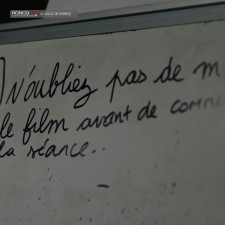 N'oubliez pas de m
le film avant de comm
la séance..